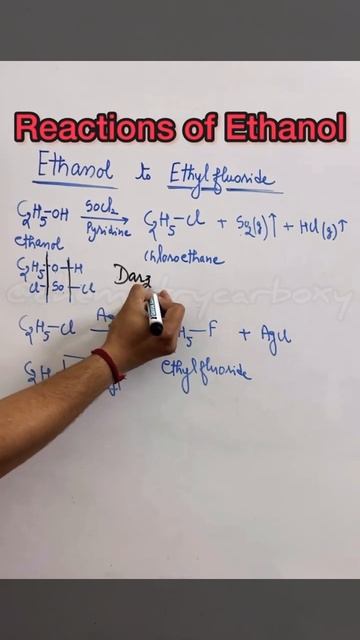 Reactions of Ethanol
Ethanol to Ethylfluoride
C2H5-OH SOCl2 Pyridine C2H5-Cl + SO2(g)↑ + HCl(g)↑
ethanol Chloroethane
C2H5 O H
Cl SO Cl
Darz
C2H5-Cl H5-F + AgCl
ethylfluoride